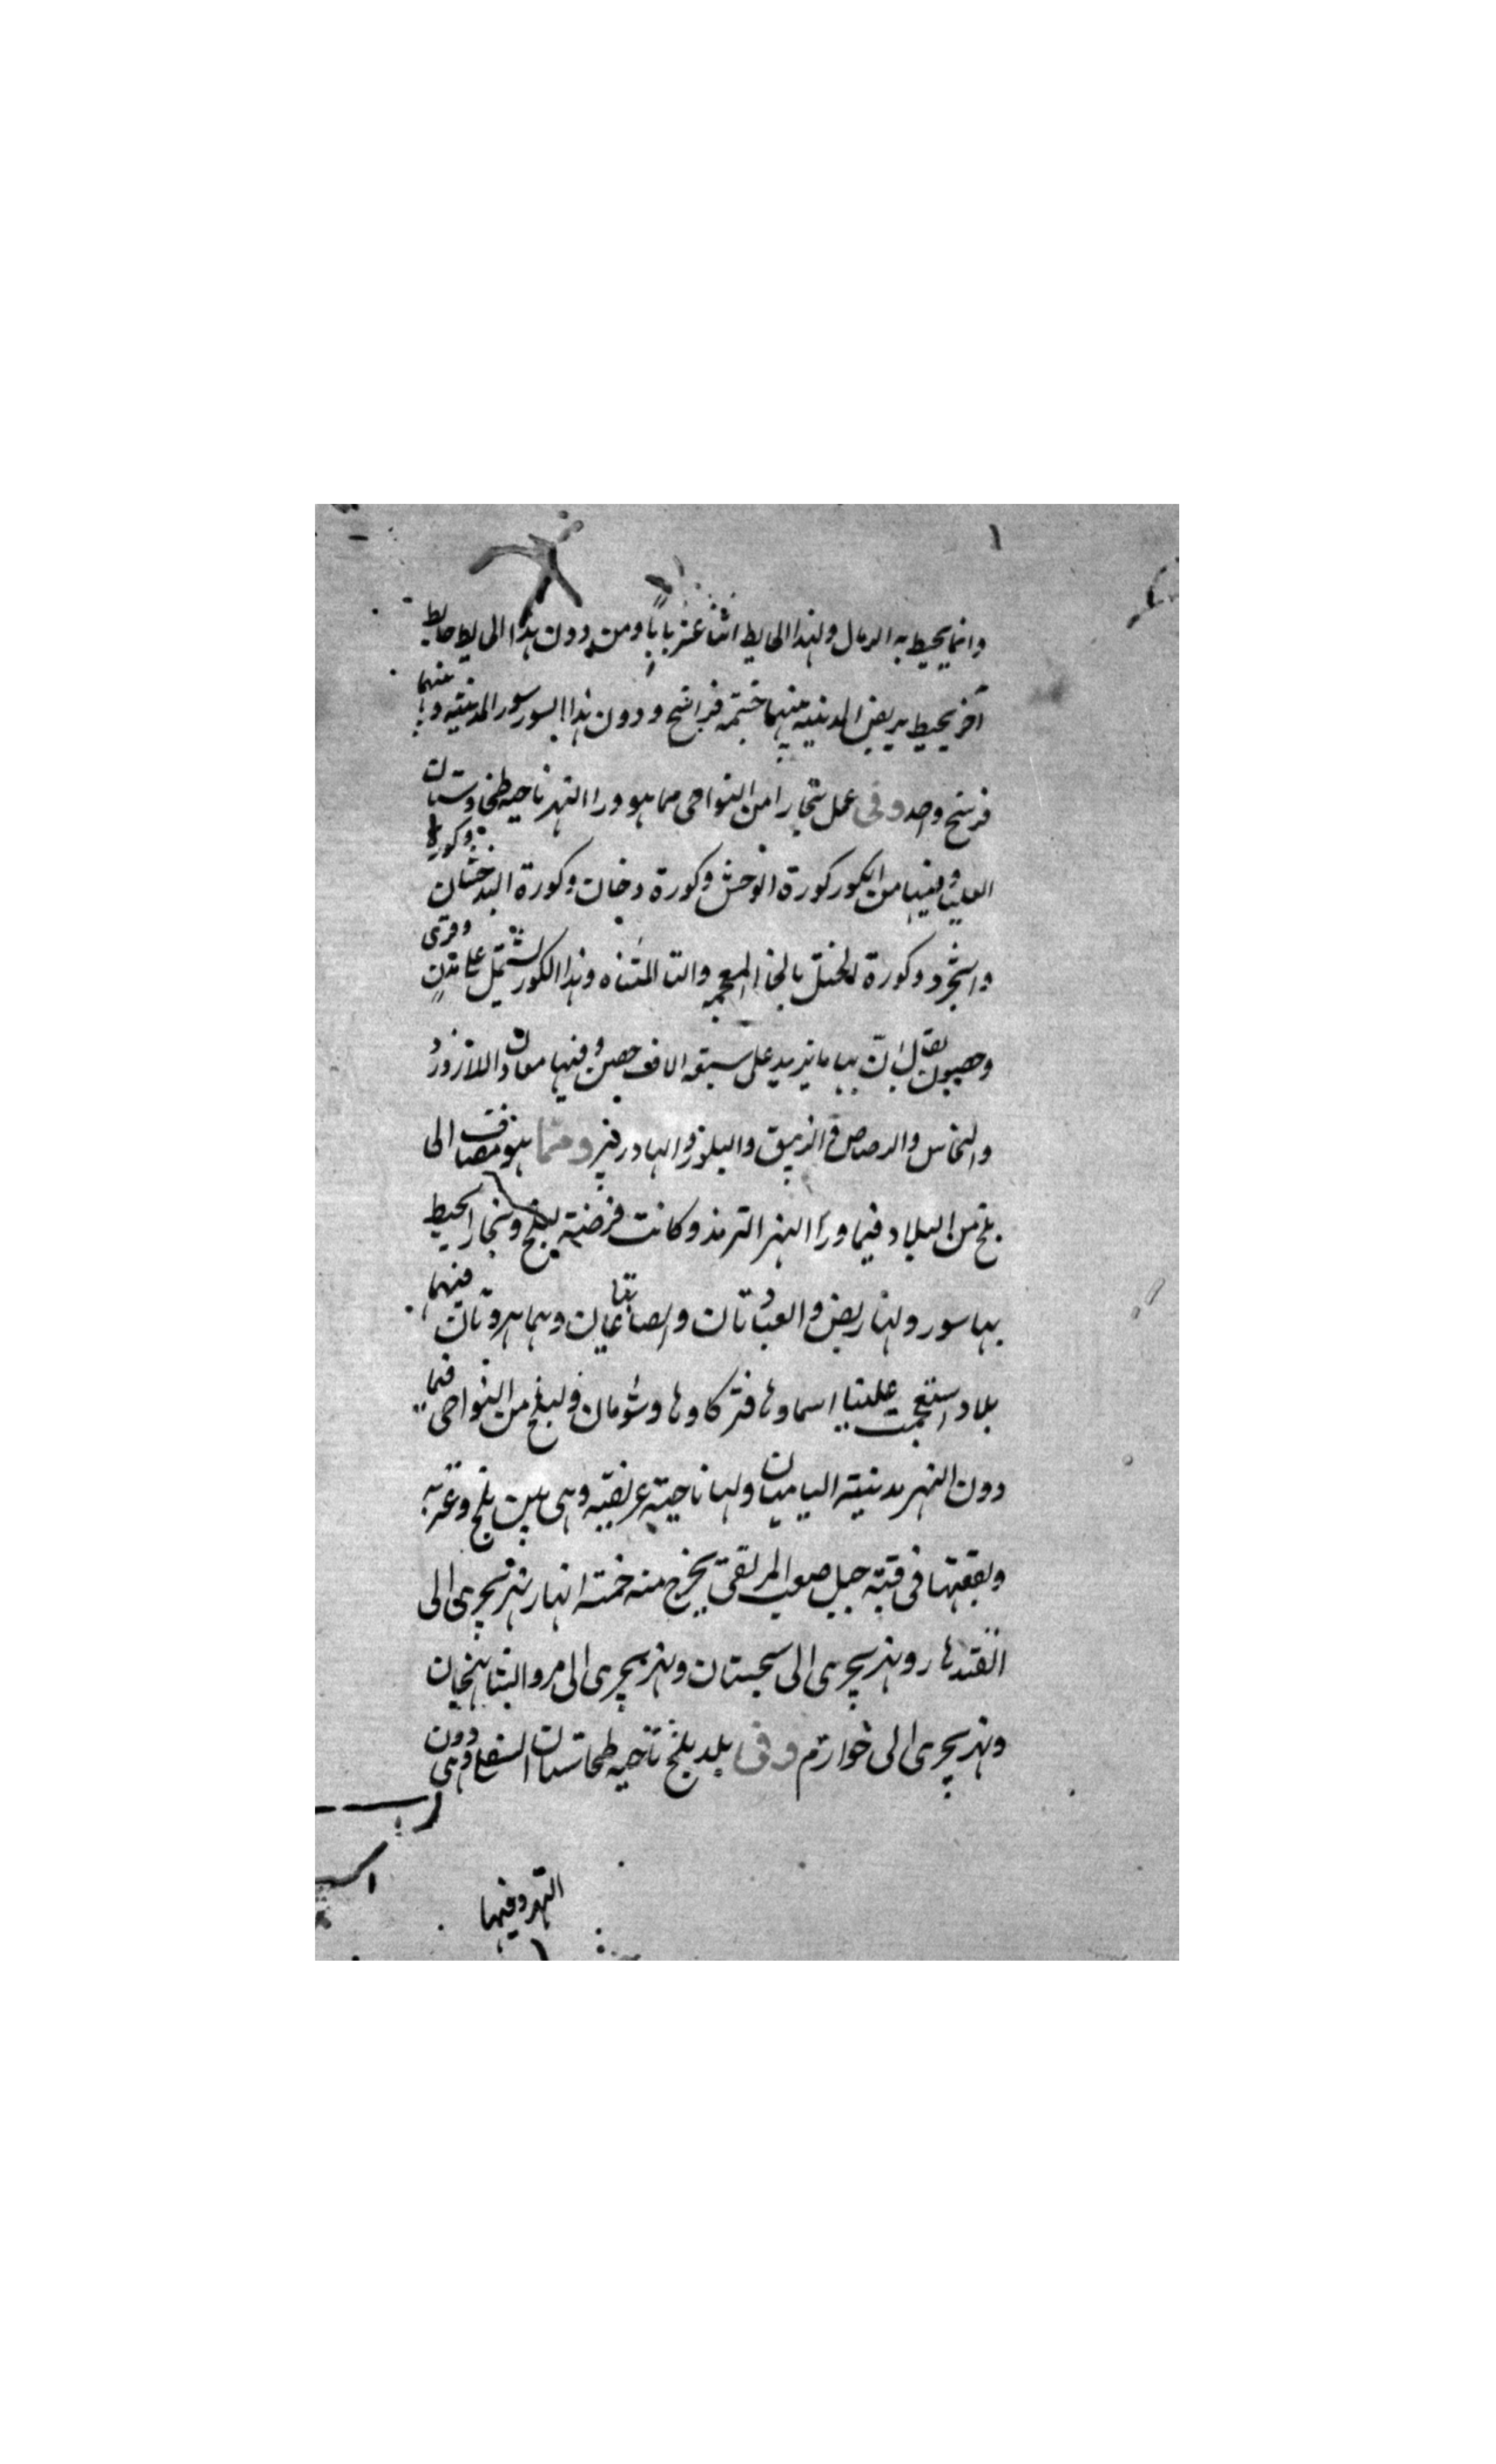 وانما يحيط به الرمال ولهذا الحايط اثنا عشر بابا ومن دون هذا الحايط حايط
آخر يحيط بربض المدينة بينهما خمسة فراسخ ودون هذا السور سور المدينة و بينهما
فرسخ واحد وفى عمل بخارا من النواحى مما هو ورا النهر ناحية طخاوستان
العليا وفيها من الكور كورة الوخش وكورة وخان وكورة البدخشان وكورة
واشجرد وكورة الختل بالخا المعجمه والتا المثناه وهذا الكور تشتمل على مدن وقرى
وحصون يقال ان بها ما يزيد على سبعة الاف حصن وفيها معادن اللازورد
والنحاس والرصاص والزيبق والبلور والبادزهر ومما هو مضاف الى
بلخ من البلاد فيما ورا النهر الترمذ وكانت فرضة لبلخ وبخارا يحيط
بها سور ولها ربض والقباديان والصاغانيان وهما مدينتان فيهما
بلاد استعجمت علينا اسماوها فتركناها وشومان ولبلخ من النواحى فيما
دون النهر مدينة الباميان ولها ناحية عريضة وهى بين بلخ وغزنه
وبقعتها فى قبة جبل صعب المرتقى يخرج منه خمسة انهار نهر يجرى الى
القندهار ونهر يجرى الى سجستان ونهر يجرى الى مرو الشاهجان
ونهر يجرى الى خوارزم وفى بلد بلخ ناحية طخاستان السفلى وهى دون
النهر وفيها